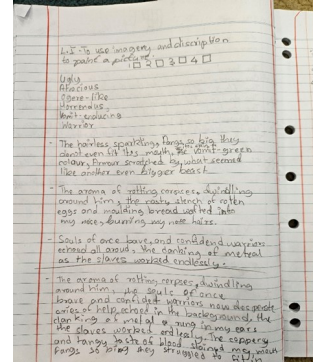 L.I - To use imagery and discription
to paint a picture: 1□ 2□ 3□ 4□
Ugly
Atrocious
Ogere-like
Horrendus
Vomit-enducing
Warrior
- The hairless sparkling, fangs so big they
dont even fit his mouth, the vomit-green
colour, Armour scratched by what seemed
like another even bigger beast
- The aroma of rotting corpses, dwindling
around him, the nasty stench of rotten
eggs and moulding bread wafted into
my nose, burning my nose hairs.
- Souls of once brave, and confidend warriors
echoed all aroud, the clanking of metreal
as the slaves worked endlessly.
- The aroma of rotting corpses, dwindling
around him, the souls of once
brave and confidet warriors now desperate
cries of help, echoed in the background, the
clanking of metal a rung in my ears
the slaves worked endlessly. The coppery
and tangy taste of blood stained my mouth
Fangs so big they struggled to fit in